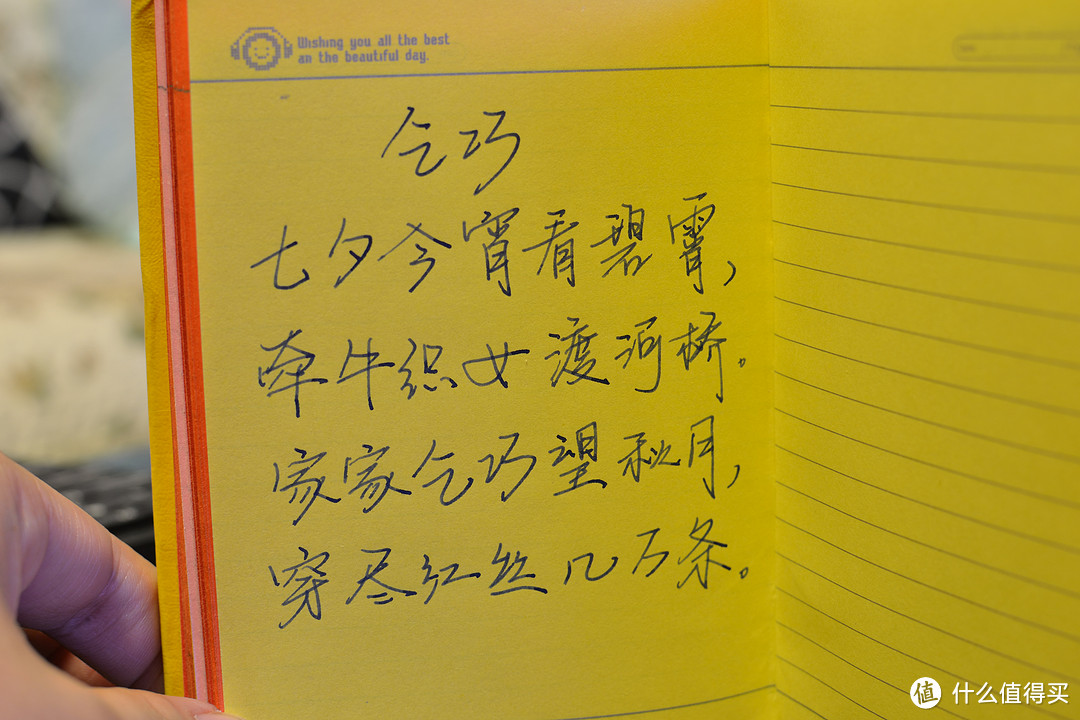 Wishing you all the best
an the beautiful day.
乞巧
七夕今宵看碧霄，
牵牛织女渡河桥。
家家乞巧望秋月，
穿尽红丝几万条。
值 什么值得买